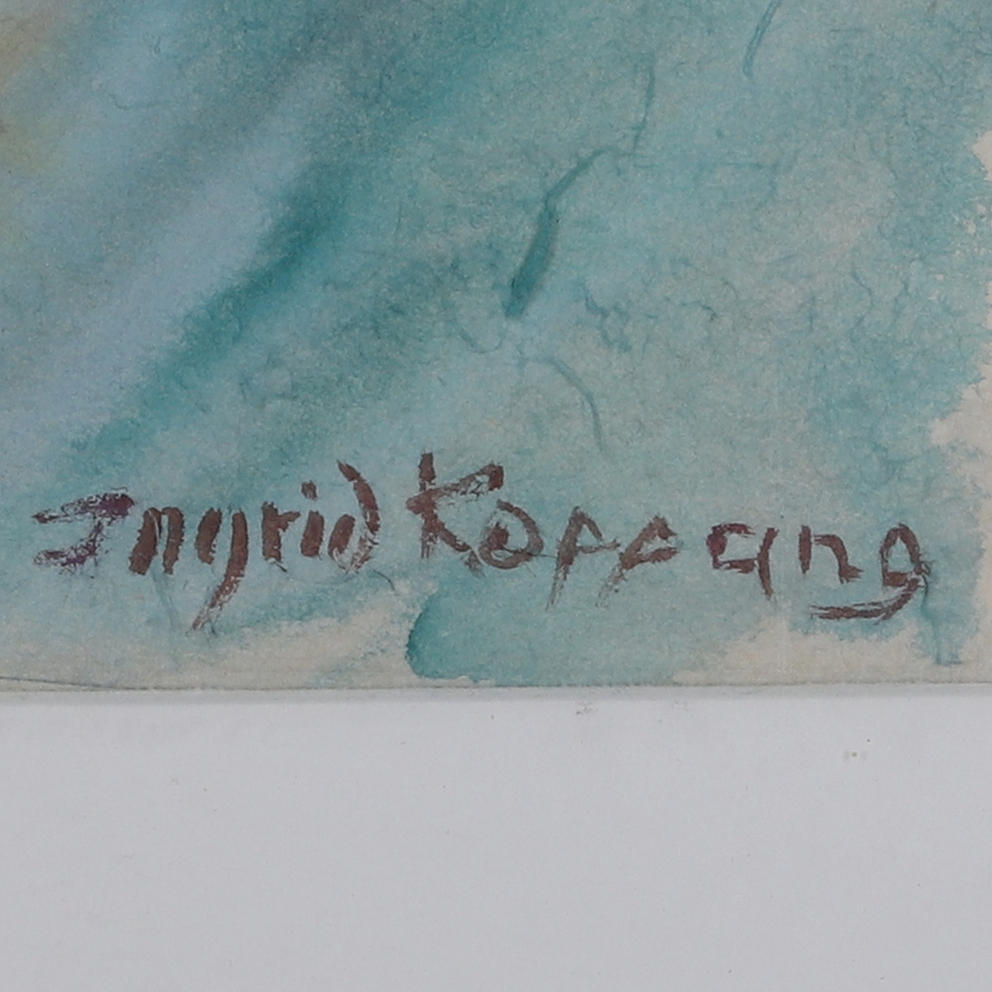 Ingrid Koppang